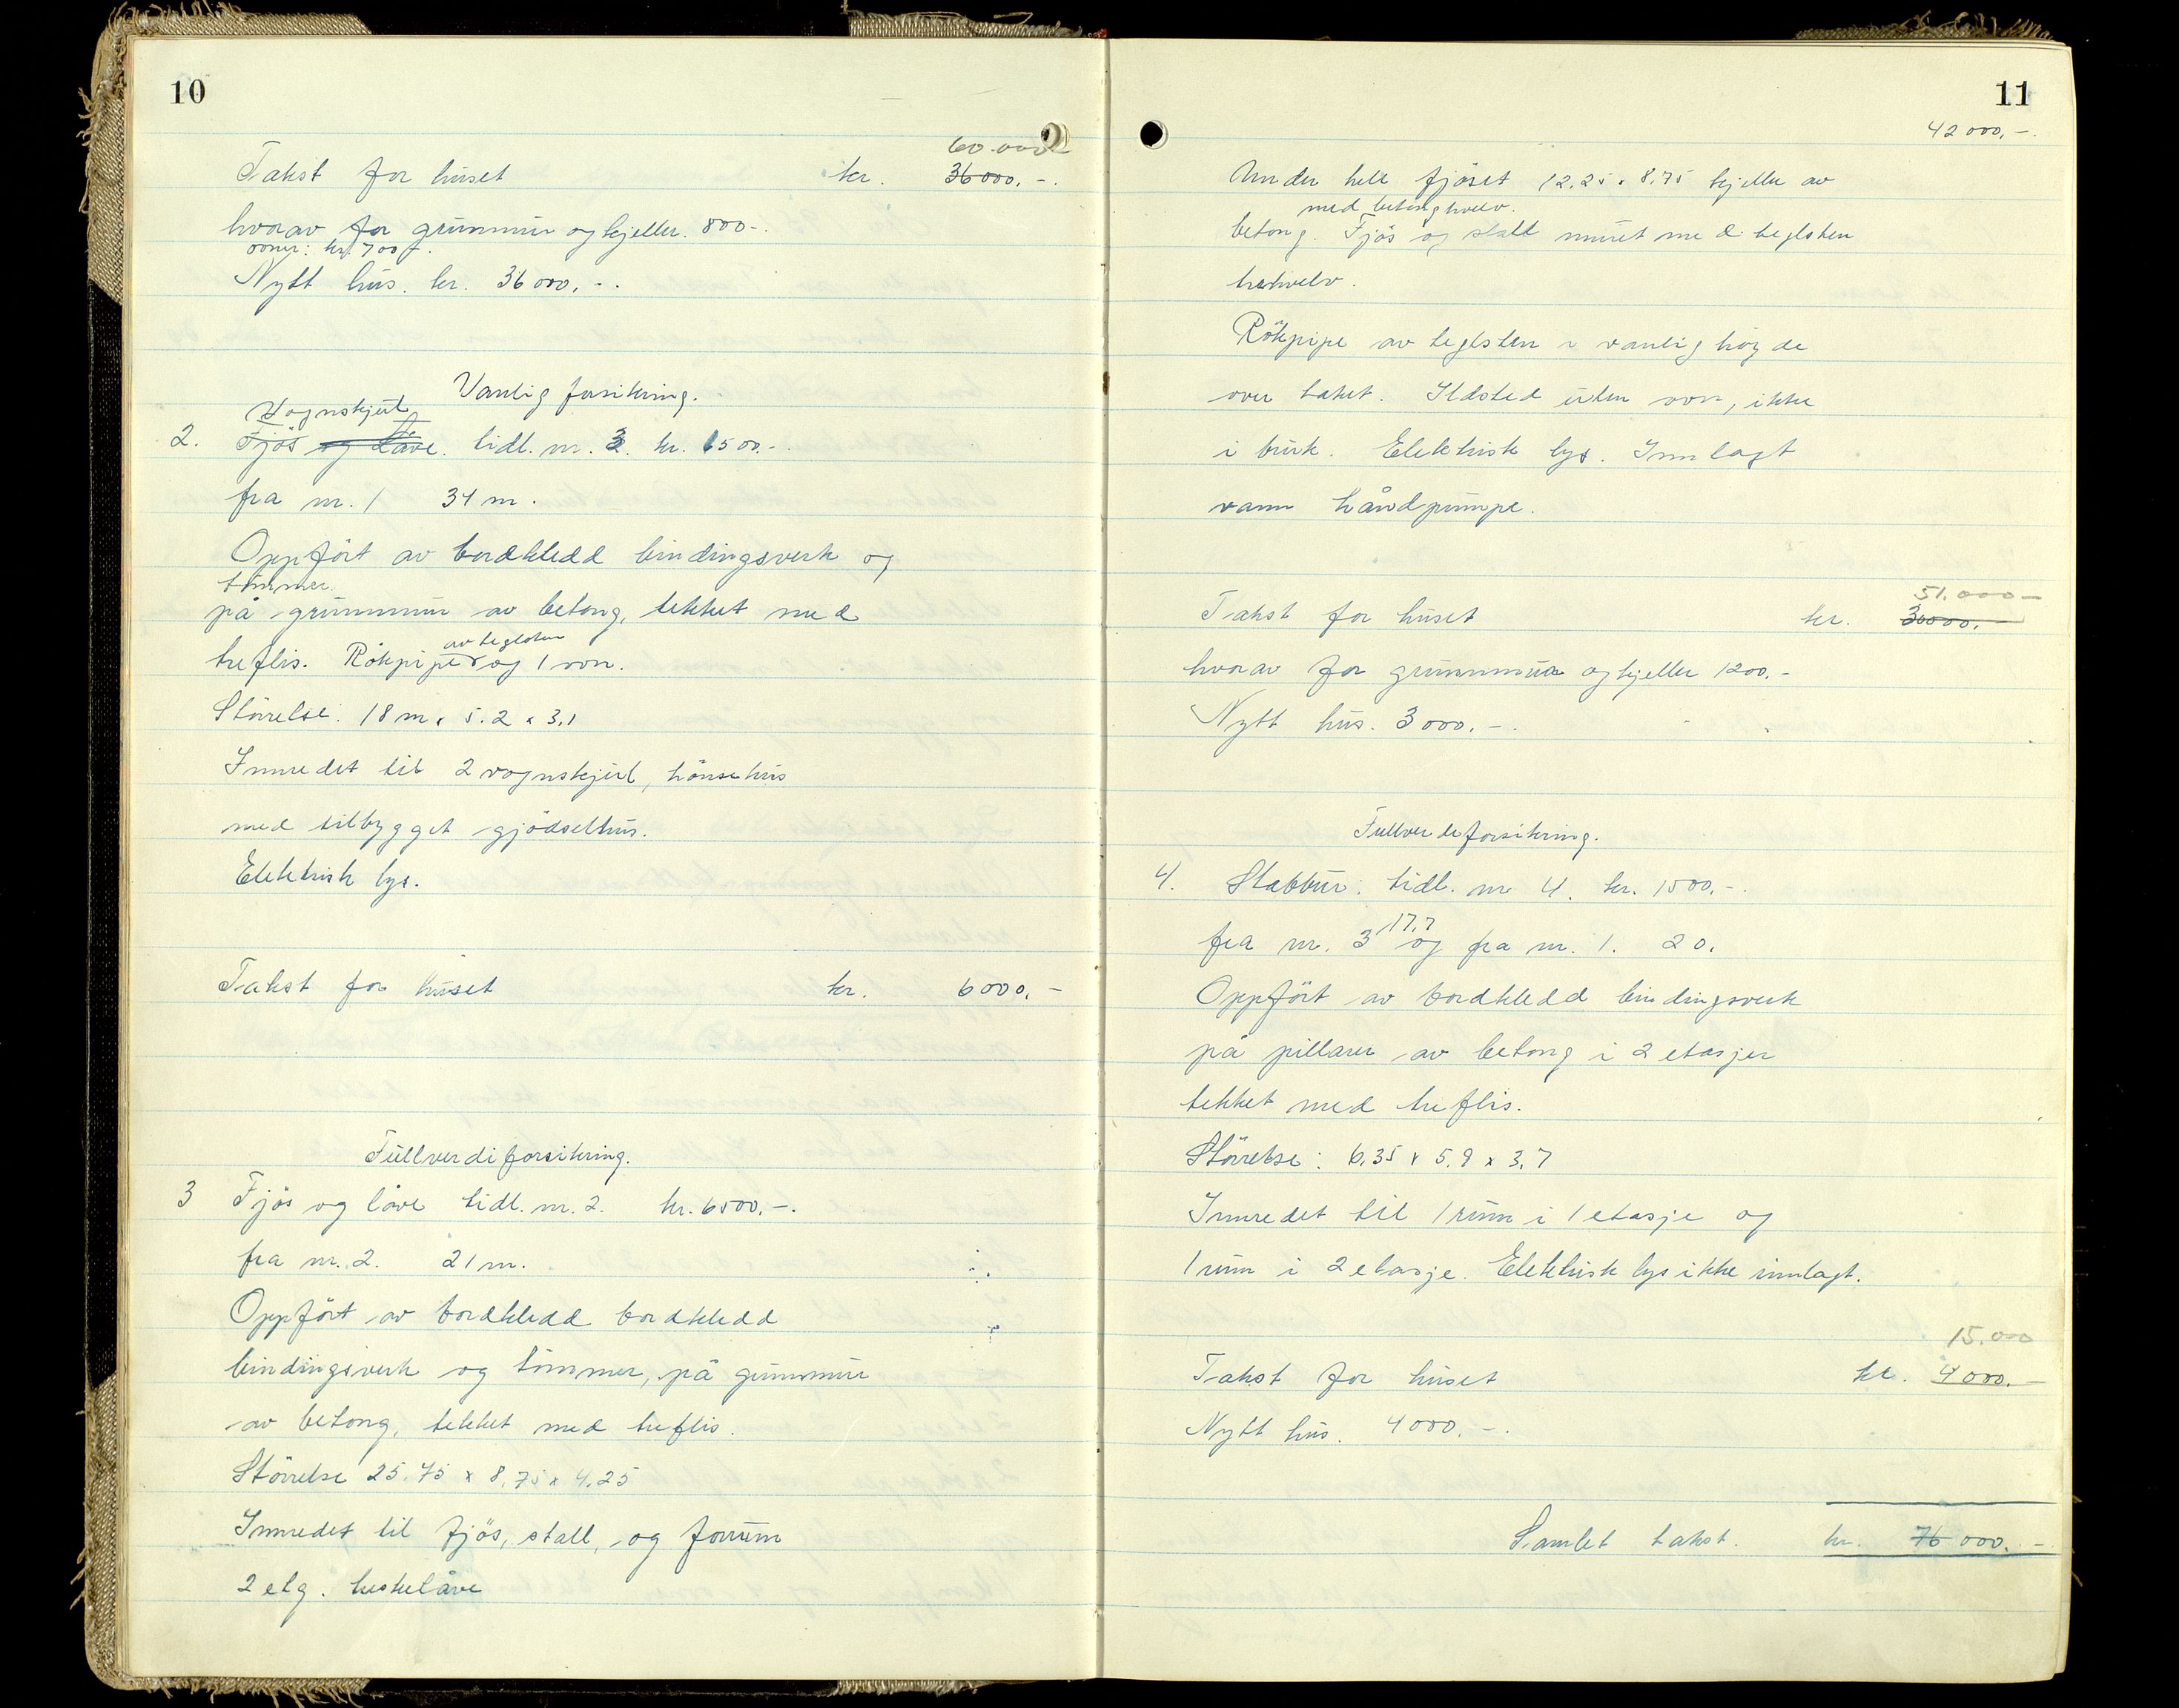 10
60.000
Takst for huset kr. 36000.-.
hvorav for grunnmur og kjeller. 800-.
ovner: kr. 700-.
Nytt hus. kr. 36000.-.
Vanlig forsikring.
Vognskjul
2. Fjös og Låve. tidl. nr. 3. kr. 1500.-.
fra nr. 1 34 m.
Oppfört av bordkledd bindingsverk og
tömmer.
på grunnmur av betong, tekket med
av teglsten
treflis. Rökpipe og 1 ovn.
Störrelse: 18 m x 5.2 x 3,1
Innredet til 2 vognskjul, hönsehus
med tilbygget gjödselhus.
Elektrisk lys.
Takst for huset kr. 6000.-
Fullverdiforsikring.
3 Fjös og låve tidl. nr. 2. kr. 6500.-.
fra nr. 2. 21 m.
Oppfört av bordkledd bordkledd
bindingsverk og tömmer, på grunnmur
av betong, tekket med treflis.
Störrelse 25.75 x 8.75 x 4.25
Innredet til fjös, stall, og forrum
2 etg. treskelåve
11
42000.-.
Under hele fjöset 12.25 x 8.75 kjeller av
med betonghvelv.
betong. Fjös og stall muret med teglsten
trehvelv.
Rökpipe av teglsten i vanlig höyde
over taket. Ildsted uten ovn, ikke
i bruk. Elektrisk lys. Innlagt
vann håndpumpe.
51.000-
Takst for huset kr. 30000.
hvorav for grunnmur og kjeller 1200.-
Nytt hus. 3000.-.
Fullverdiforsikring.
4. Stabbur: tidl. nr 4. kr. 1500.-.
17.7
fra nr. 3 og fra nr. 1. 20.
Oppfört av bordkledd bindingsverk
på pillarer av betong i 2 etasjer
tekket med treflis.
Störrelse: 6.35 x 5.9 x 3.7
Innredet til 1 rum i 1 etasje og
1 rum i 2 etasje. Elektrisk lys ikke innlagt.
15.000
Takst for huset kr. 4000.-
Nytt hus. 4000.-.
Samlet takst. kr. 76000.-